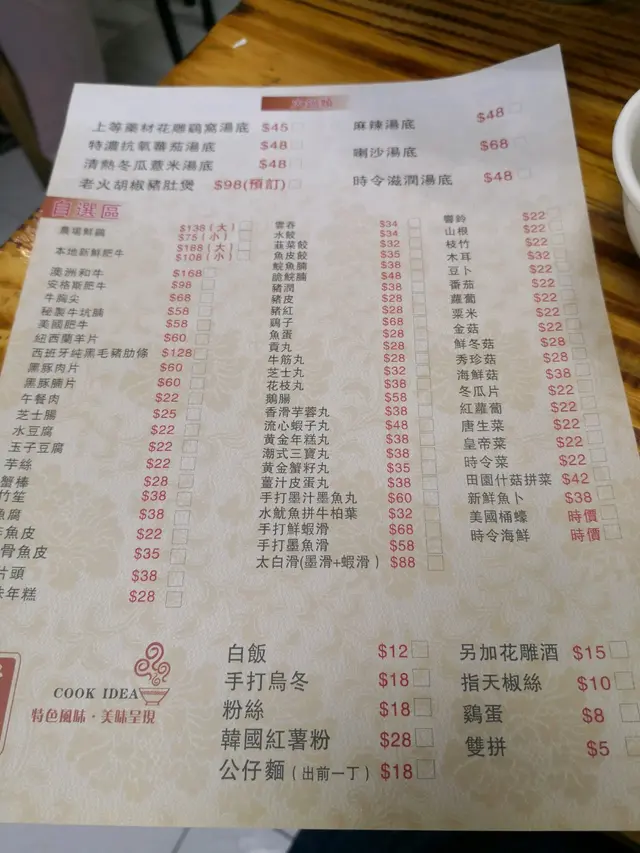 上等藥材花雕鷄窩湯底 $45
特濃抗氧蕃茄湯底 $48
清熱冬瓜薏米湯底 $48
老火胡椒豬肚煲 $98(預訂)
麻辣湯底 $48
喇沙湯底 $68
時令滋潤湯底 $48
自選區
農場鮮鷄 $138(大)
$75(小)
本地新鮮肥牛 $188(大)
$108(小)
澳洲和牛 $168
安格斯肥牛 $98
牛胸尖 $68
秘製牛坑腩 $58
美國肥牛 $58
紐西蘭羊片 $60
西班牙純黑毛豬肋條 $128
黑豚肉片 $60
黑豚腩片 $60
午餐肉 $22
芝士腸 $25
水豆腐 $22
玉子豆腐 $22
芋絲 $22
蟹棒 $28
竹笙 $38
魚腐 $38
魚皮 $22
骨魚皮 $35
片頭 $38
年糕 $28
雲吞 $34
水餃 $34
韮菜餃 $32
魚皮餃 $35
鯇魚腩 $38
$48
豬潤 $38
豬皮 $28
豬紅 $28
鷄子 $68
魚蛋 $28
貢丸 $28
牛筋丸 $28
芝士丸 $32
花枝丸 $38
鵝腸 $58
香滑芋蓉丸 $38
流心蝦子丸 $48
黃金年糕丸 $38
潮式三寶丸 $38
黃金蟹籽丸 $35
薑汁皮蛋丸 $38
手打墨汁墨魚丸 $60
水魷魚拼牛柏葉 $32
手打鮮蝦滑 $68
手打墨魚滑 $58
太白滑(墨滑+蝦滑) $88
響鈴 $22
山根 $22
枝竹 $22
木耳 $32
豆卜 $22
番茄 $22
蘿蔔 $22
粟米 $22
金菇 $22
鮮冬菇 $28
秀珍菇 $28
海鮮菇 $38
冬瓜片 $22
紅蘿蔔 $22
唐生菜 $22
皇帝菜 $22
時令菜 $22
田園什菇拼菜 $42
新鮮魚卜 $38
美國桶蠔 時價
時令海鮮 時價
COOK IDEA
特色風味·美味呈現
白飯 $12
手打烏冬 $18
粉絲 $18
韓國紅薯粉 $28
公仔麵(出前一丁) $18
另加花雕酒 $15
指天椒絲 $10
鷄蛋 $8
雙拼 $5